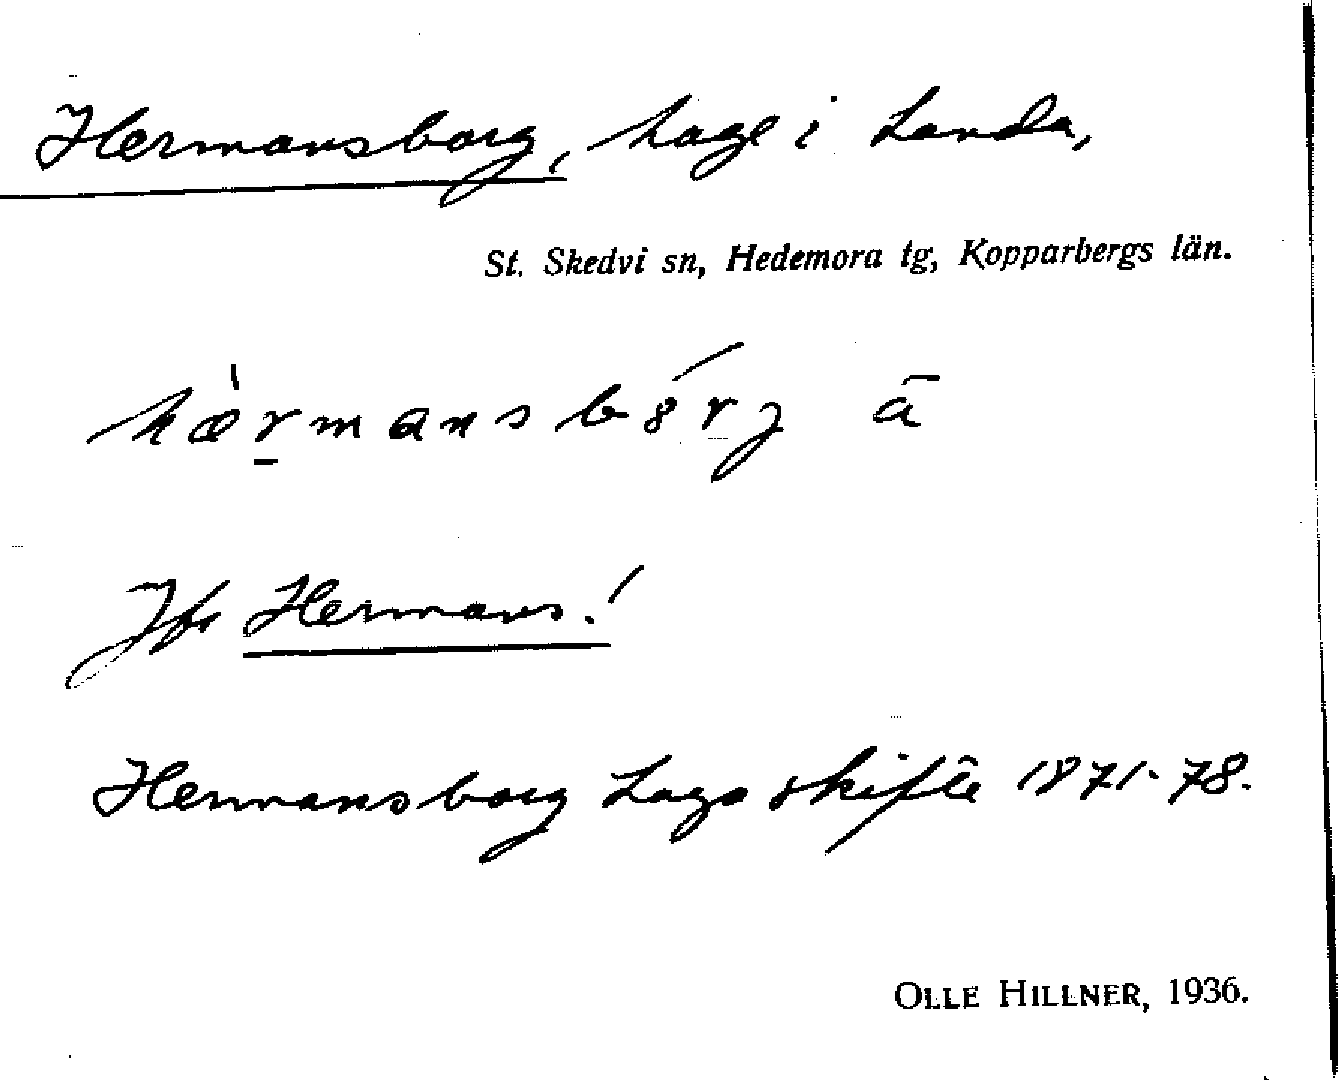 Hermansborg, hage i Landa,
St. Skedvi sn, Hedemora tg, Kopparbergs län.
hærmansbórj ā
Jfr Hermans!
Hermansborg Laga skifte 1871-78.
OLLE HILLNER, 1936.